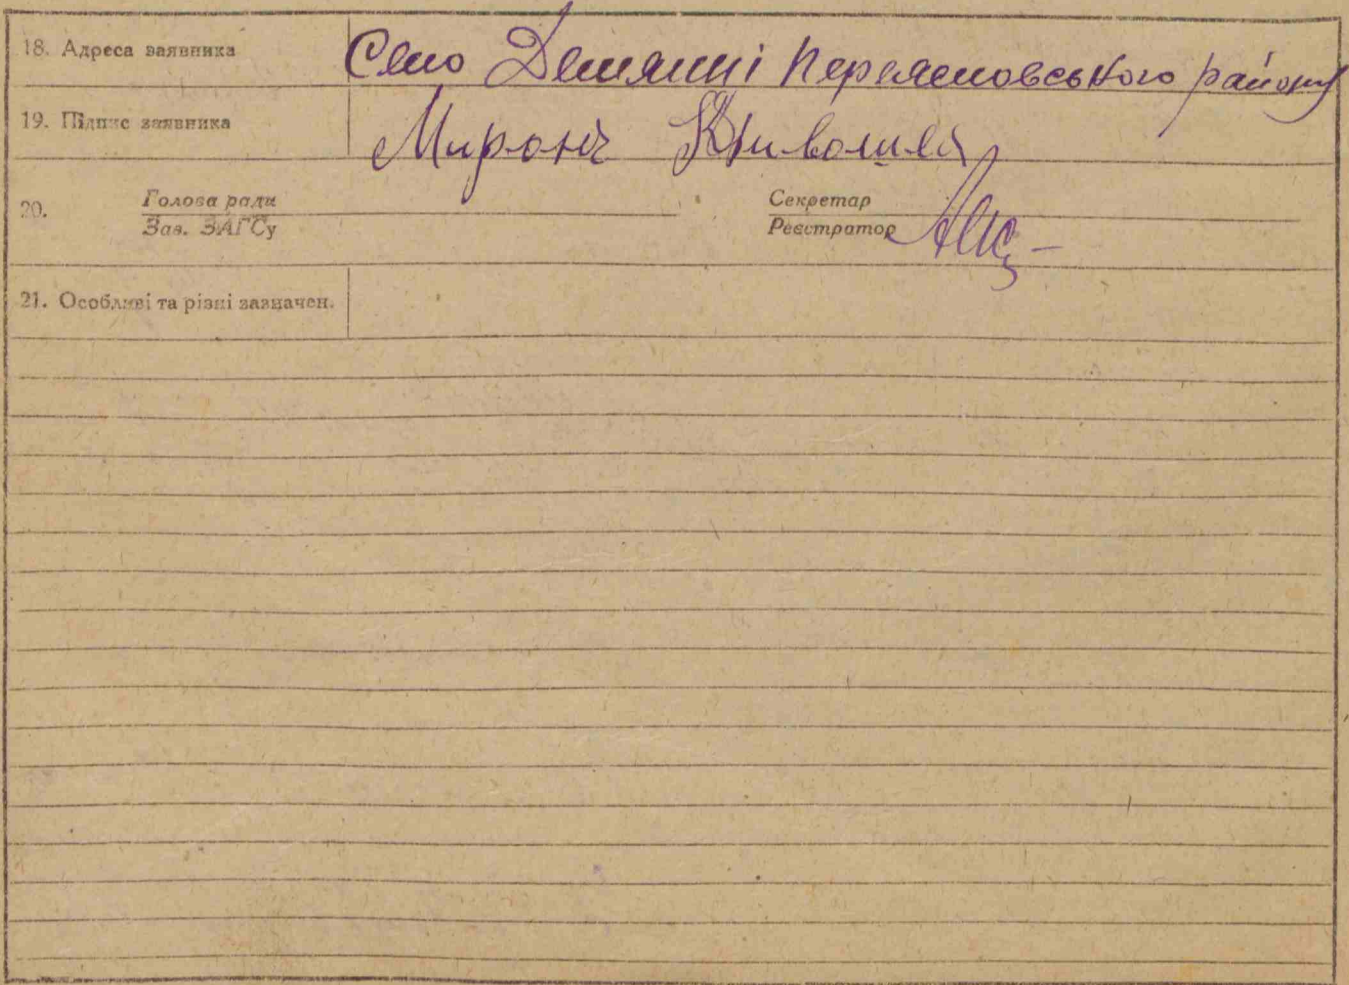 18. Адреса заявника Село Демянці Переяславського району
19. Підпис заявника Миронъ Кривошея
20. Голова ради Секретар
Зав. ЗАГСу Реєстратор
21. Особливі та різні зазначен.